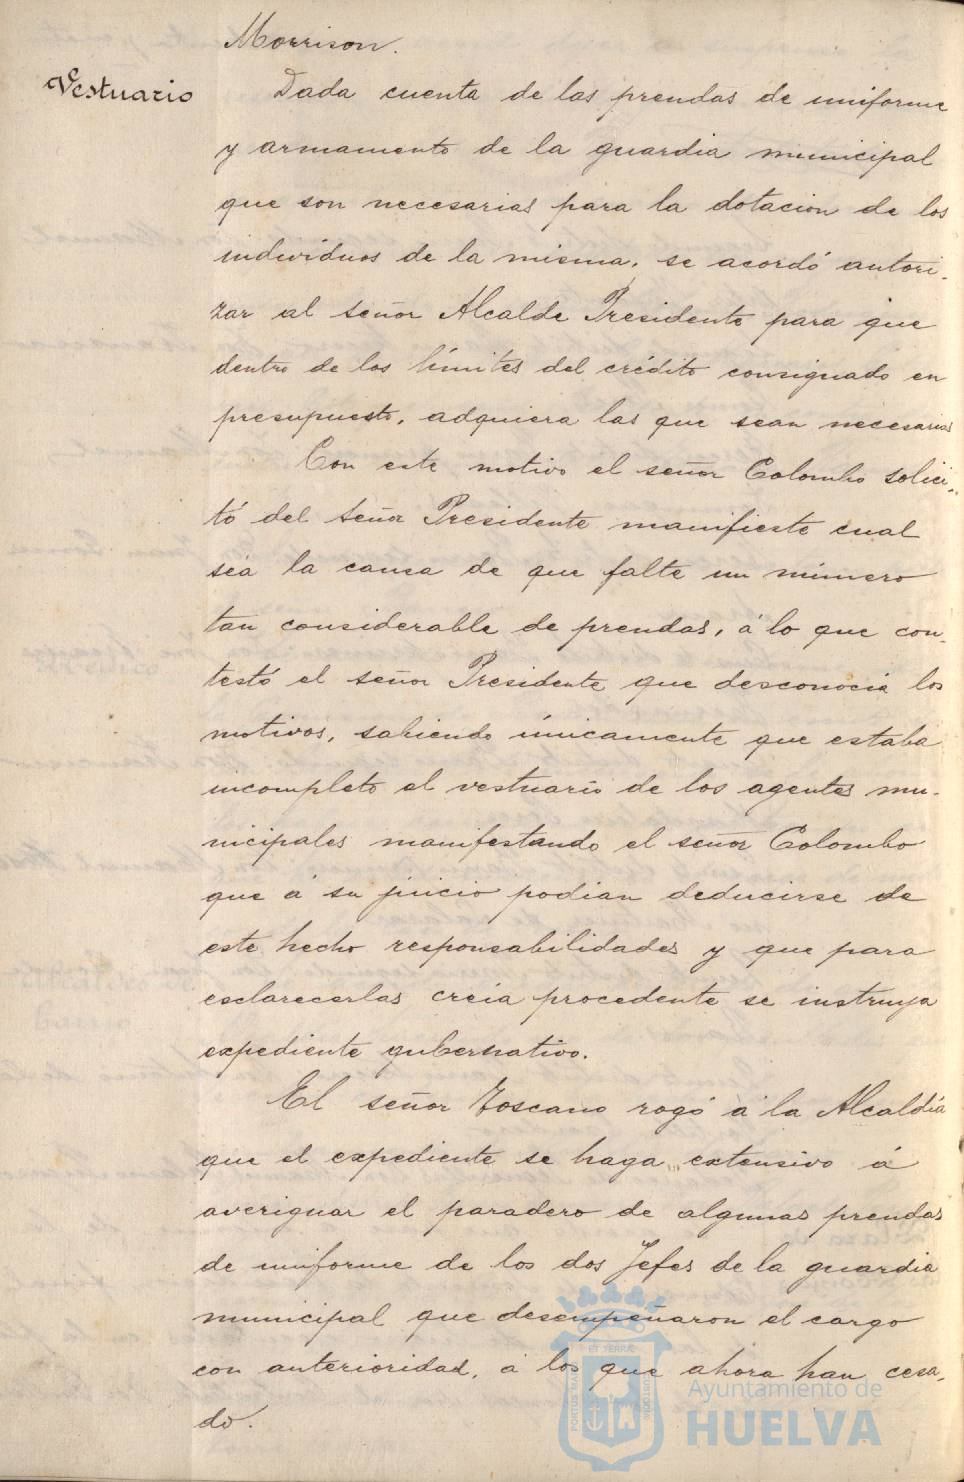 Morrison.
Vestuario
Dada cuenta de las prendas de uniforme
y armamento de la guardia municipal
que son necesarias para la dotacion de los
individuos de la misma, se acordó autori-
zar al señor Alcalde Presidente para que
dentro de los límites del crédito consignado en
presupuesto, adquiera las que sean necesarias
Con este motivo el señor Colombo solici-
tó del señor Presidente manifieste cual
sea la causa de que falte un número
tan considerable de prendas, á lo que con-
testó el señor Presidente que desconocia los
motivos, sabiendo únicamente que estaba
incompleto el vestuario de los agentes mu-
nicipales manifestando el señor Colombo
que á su juicio podian deducirse de
este hecho responsabilidades y que para
esclarecerlas creia procedente se instruya
expediente gubernativo.
El señor Toscano rogó á la Alcaldía
que el expediente se haga extensivo á
averiguar el paradero de algunas prendas
de uniforme de los dos Jefes de la guardia
municipal que desempeñaron el cargo
con anterioridad, á los que ahora han cesa-
do.
PORTUS MARIS
ET TERRÆ
CUSTODIA
Ayuntamiento de
HUELVA